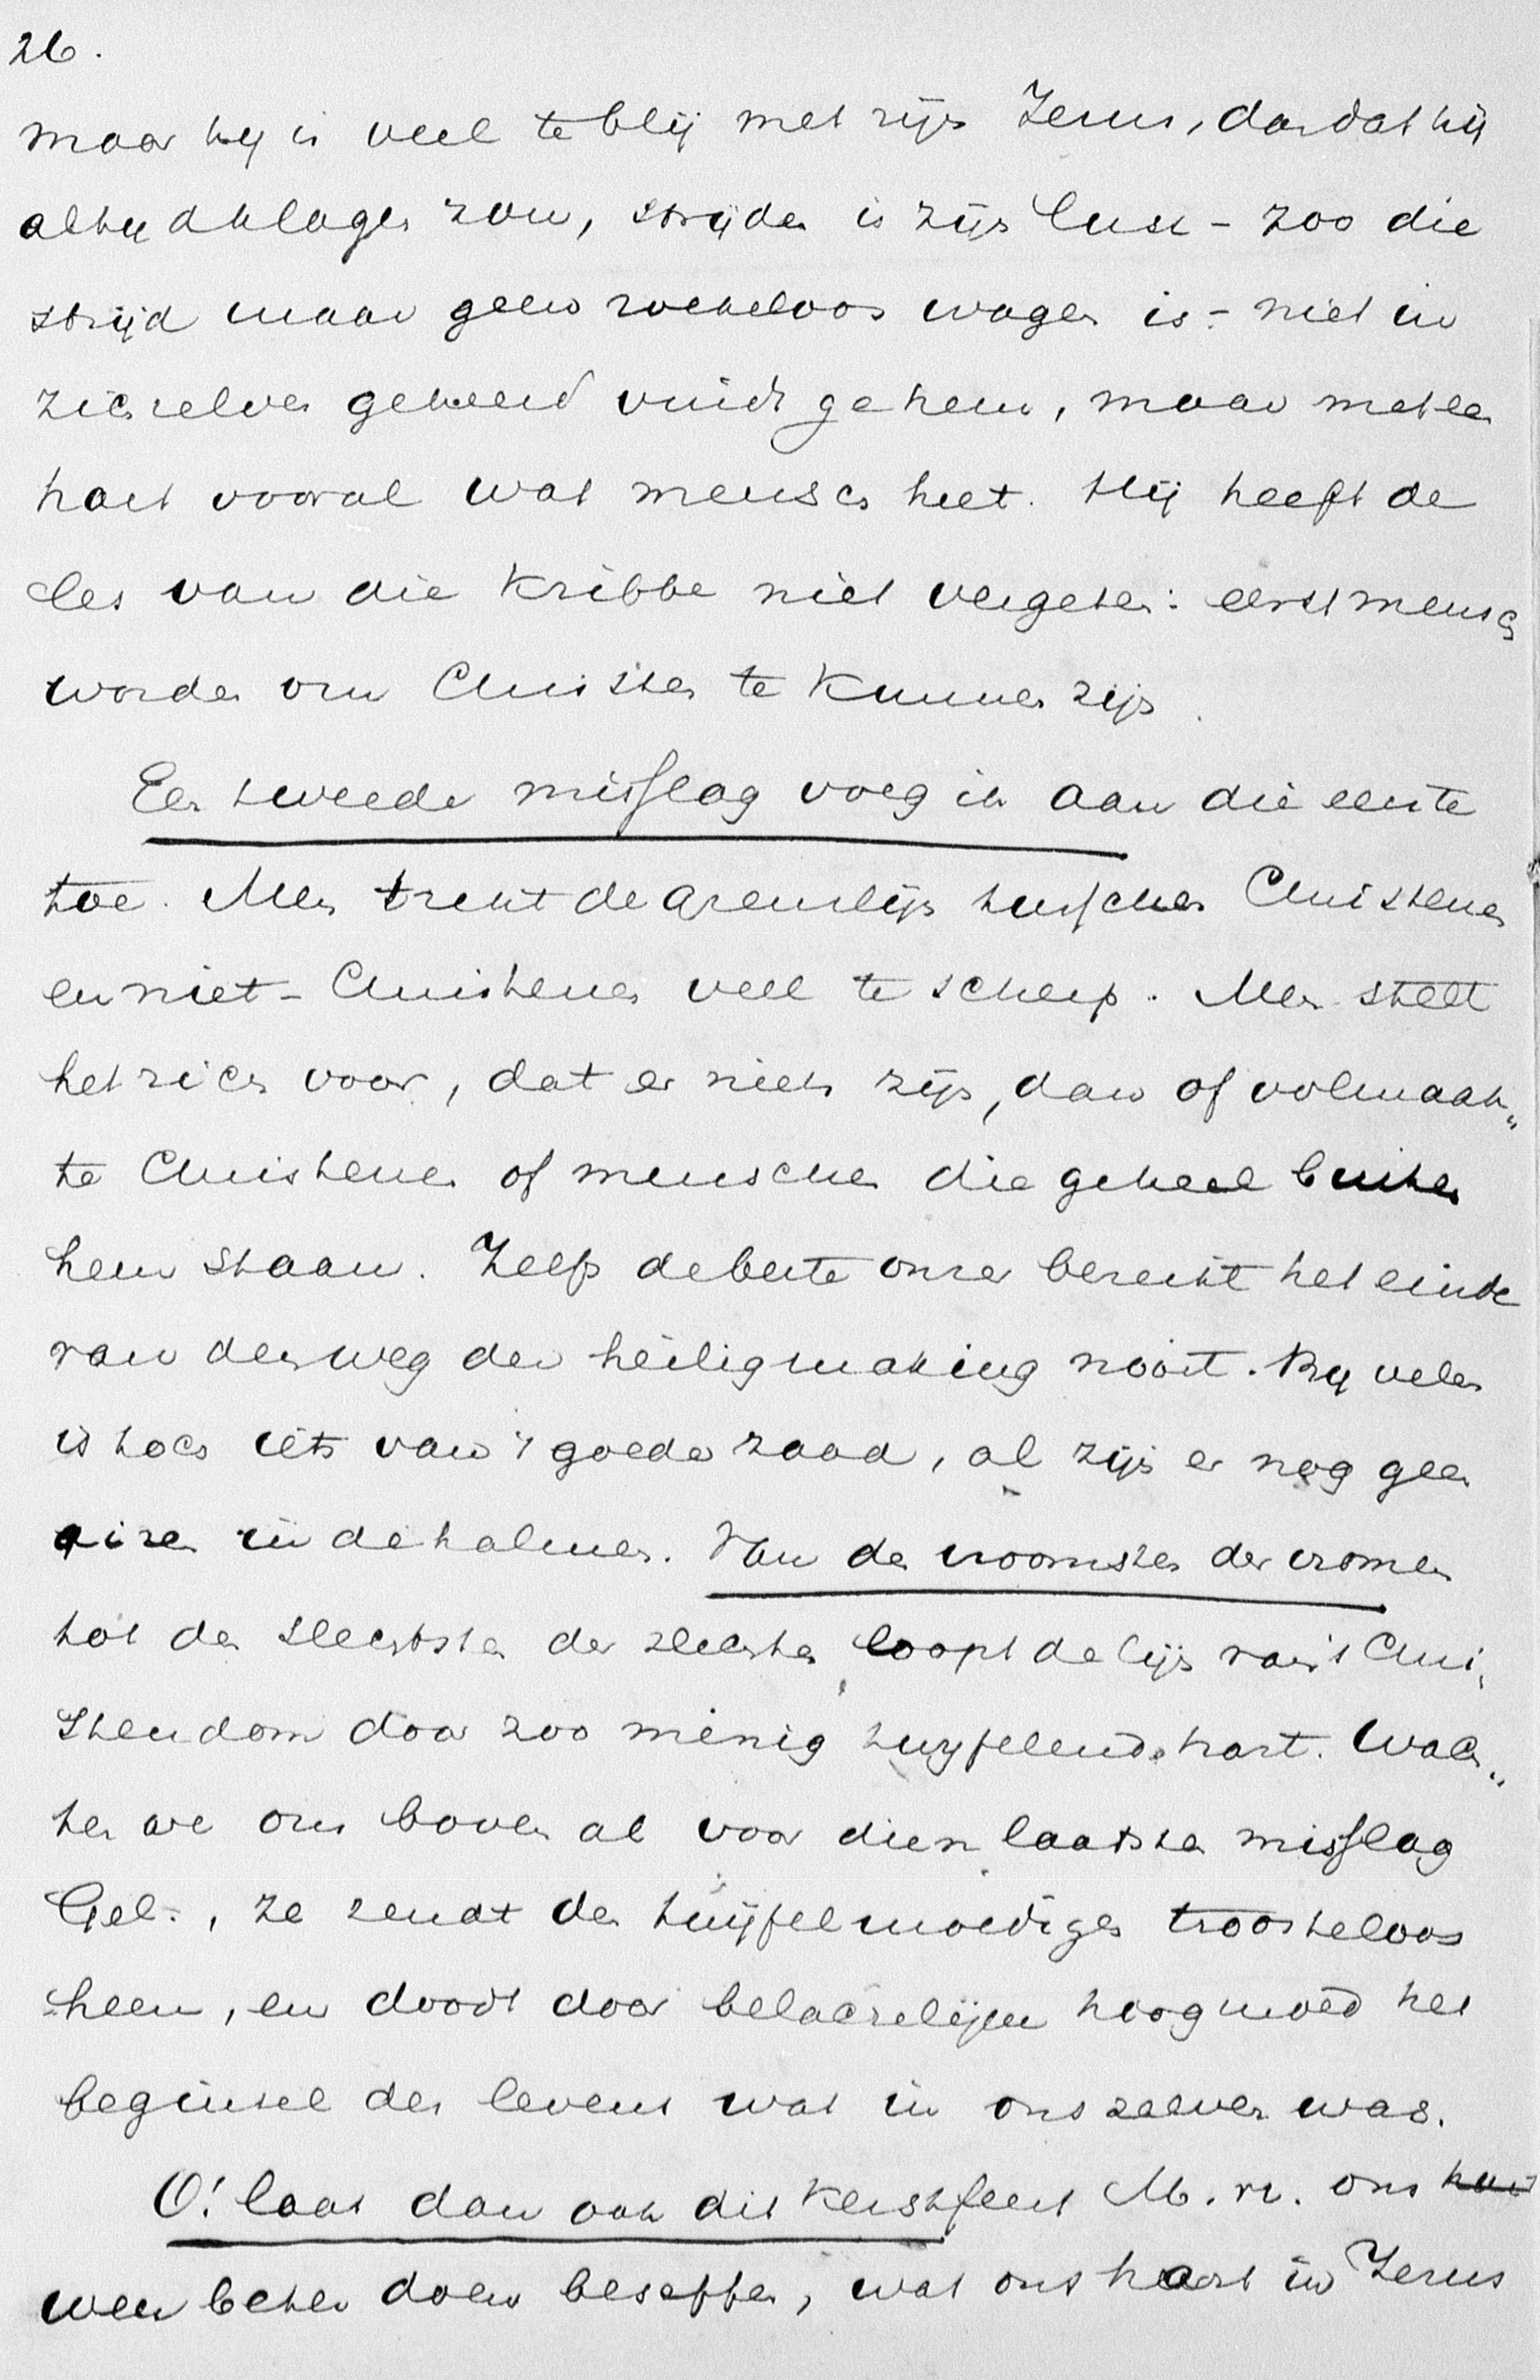 26.
maar hij is veel te blij met zijn Jezus, dan dat hij
altijd klagen zou, strijden is zijn lust - zoo die
strijd maar geen roekeloos wagen is - niet in
zichzelven gekeerd vindt ge hem, maar met een
hart voor al wat mensch heet. Hij heeft de
les van die Kribbe niet vergeten: eerst mensch
worden om Christen te kunnen zijn.
Een tweede misslag voeg ik aan die eerste
toe. Men trekt de grenslijn tusschen Christenen
en niet-Christenen veel te scherp. Men stelt
het zich voor, dat er niets zijn, dan of volmaak„
te Christenen of menschen die geheel buiten
hem staan. Zelfs de beste onzer bereikt het einde
van den weg der heiligmaking nooit. Bij velen
is toch iets van 't goede zaad, al zijn er nog geen
airen in de halmen. Van de vroomsten der vromen
tot de slechtsten der slechten loopt de lijn van 't Chri„
stendom door zoo menig twijfelend hart. Wach„
ten we ons boven al voor dien laatsten misslag
Gel., ze zendt de twijfelmoedigen troosteloos
heen, en doodt door belachelijken hoogmoed het
beginsel des levens wat in ons zelven was.
O! laat dan ook dit Kerstfeest M. vr. ons
weer beter doen beseffen, wat ons hart in Jezus